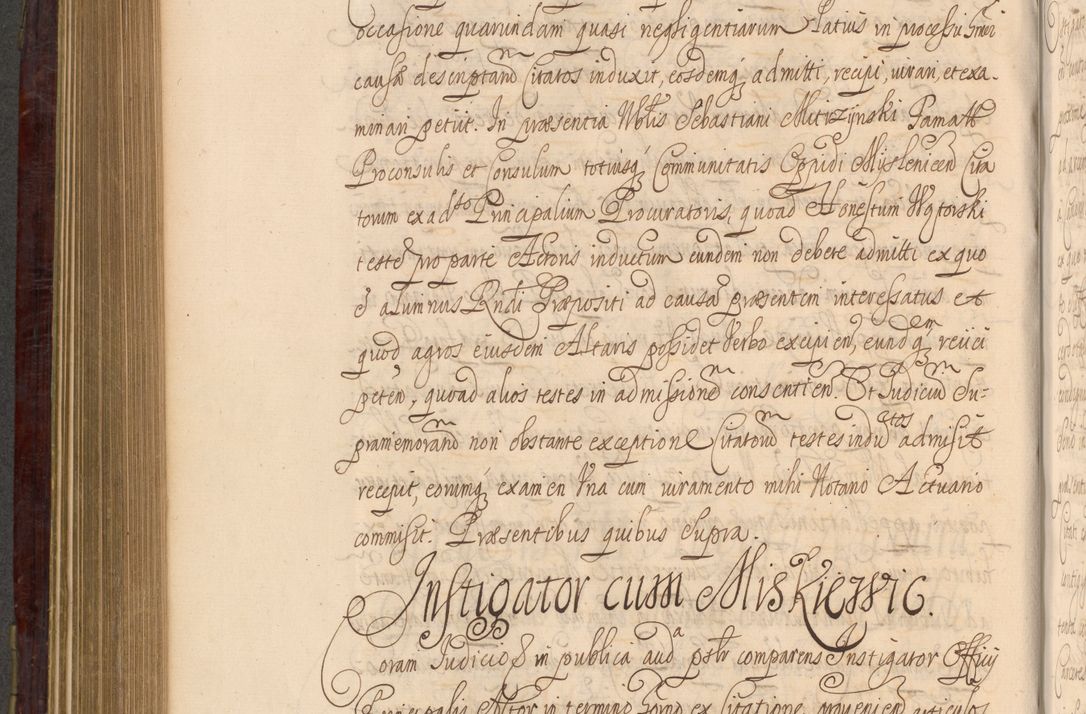 occasione quarundam quasi negligentiarum latius in processu huius
causæ descriptam citatos induxit, eosdemq; admitti, recipi, iurari, et exa-
minari petiit. In præsentia Nblis Sebastiani Miticzynski Famatt
Proconsulis et Consulum totiusq; Communitatis Oppidi Mislenicen Cita
torum ex ad sto Principalium Procuratoris, quoad Honestum Wątorski
teste pro parte Actoris inductum eundem non debere admitti ex quo
e alumnus Rndi Præpositi ad causa præsentem interessatus et
quod agros eiusdem Altaris possidet verbo excipien, eundemq; reiici
peten, quoad alios testes in admissione consentien. Et Judiciu Su-
pramemorand non obstante exceptione Citatorum testes inductos admisit
recepit, eorumq; examen Una cum iuramento mihi Notario Actuario
commisit. Præsentibus quibus Supra.
Instigator cum Miskiewic.
Coram Judicio in publica auda pstr comparens Instigator Officij
Principalis Actor in termino hodno ex Citatione provenien articulos